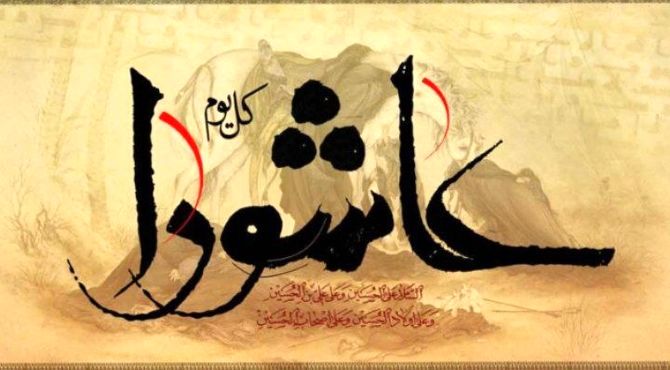 کل یوم
عاشورا
السلام علی الحسین و علی علی بن الحسین
و علی اولاد الحسین و علی اصحاب الحسین